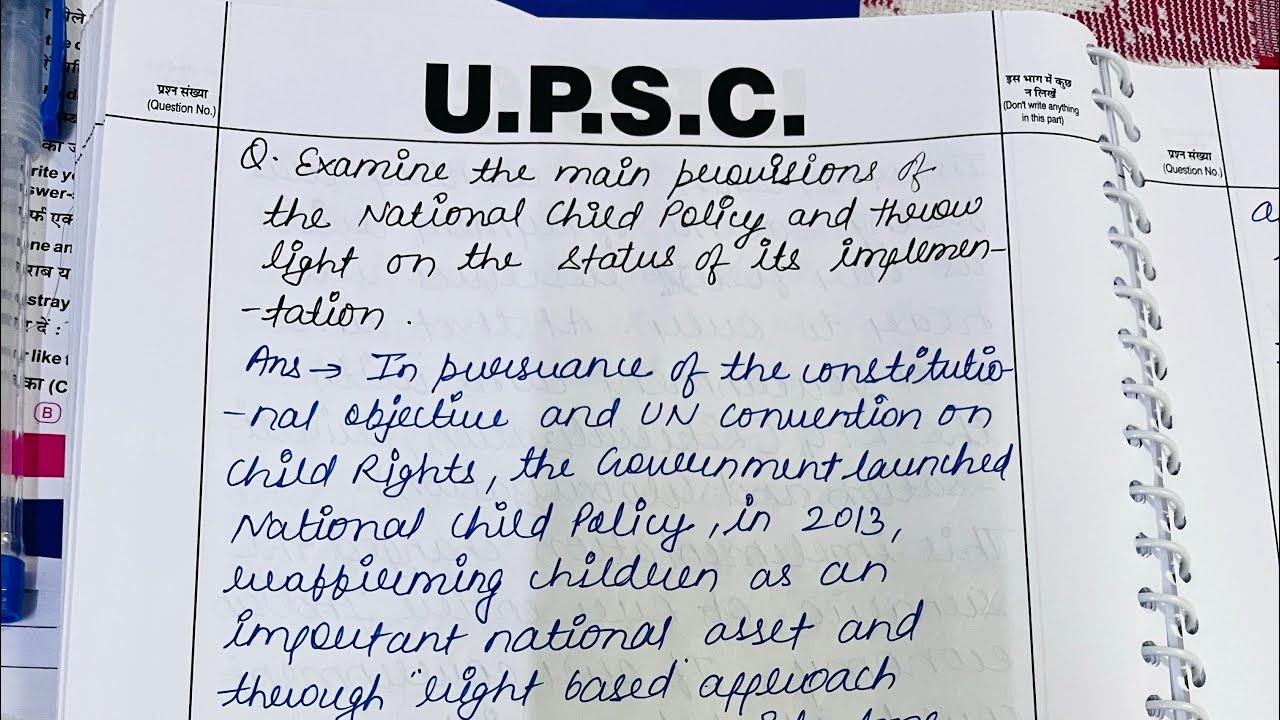 U.P.S.C.
प्रश्न संख्या
(Question No.)
इस भाग में कुछ
न लिखें
(Don't write anything
in this part)
Q. Examine the main provisions of
the National Child Policy and throw
light on the status of its implemen-
-tation.
Ans → In pursuance of the constitutio-
-nal objective and UN convention on
Child Rights, the Government launched
National Child Policy, in 2013,
reaffirming children as an
important national asset and
through "right based" approach
प्रश्न संख्या
(Question No.)
a
rite y
swer-
ne an
stray
like t
का (C
B